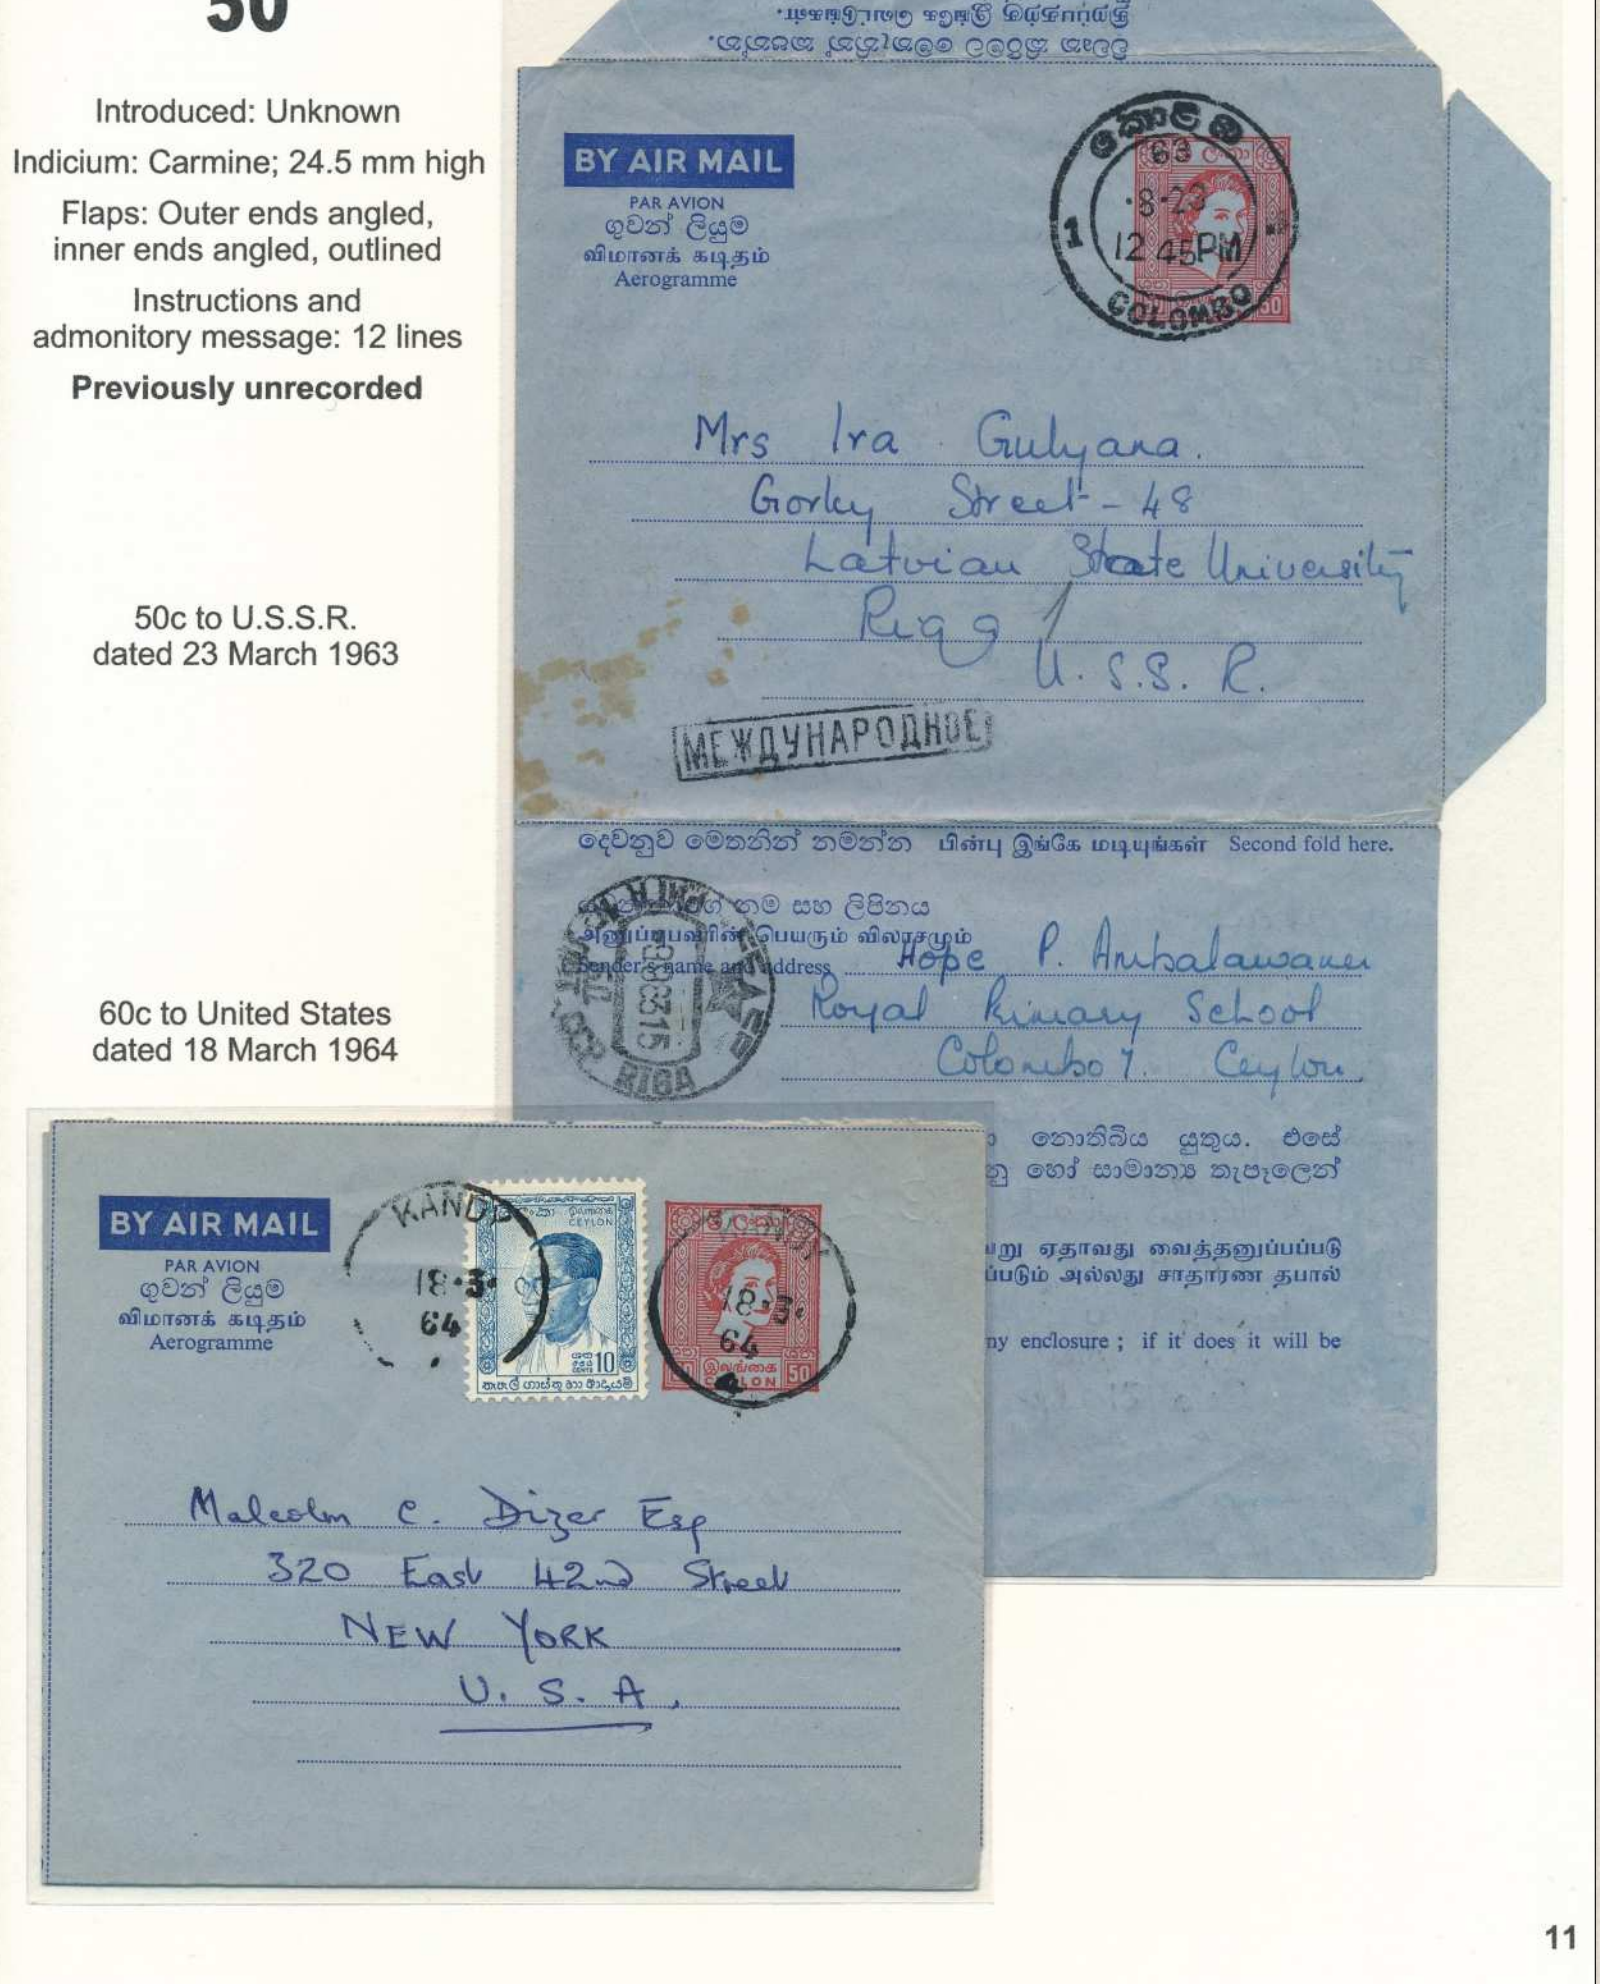 50
Introduced: Unknown
Indicium: Carmine; 24.5 mm high
Flaps: Outer ends angled,
inner ends angled, outlined
Instructions and
admonitory message: 12 lines
Previously unrecorded
50c to U.S.S.R.
dated 23 March 1963
60c to United States
dated 18 March 1964
BY AIR MAIL
PAR AVION
ගුවන් ලියුම
விமானக் கடிதம்
Aerogramme
කොළඹ
63
12 45PM
1
COLOMBO
50
Mrs Ira Gulyana.
Gorky Street - 48
Latvian State University
Riga
U. S. S. R.
МЕЖДУНАРОДНОЕ
දෙවනුව මෙතනින් නමන්න பின்பு இங்கே மடியுங்கள் Second fold here.
නම සහ ලිපිනය
அனுப்புபவரின் பெயரும் விலாசமும்
Sender's name and address Hope P. Ambalawaner
Royal Primary School
Colombo 7. Ceylon
RIGA
නොතිබිය යුතුය. එසේ
හෝ සාමාන්‍ය තැපෑලෙන්
ஏதாவது வைத்தனுப்பப்படு
அல்லது சாதாரண தபால்
ny enclosure ; if it does it will be
BY AIR MAIL
PAR AVION
ගුවන් ලියුම
விமானக் கடிதம்
Aerogramme
KANDY
18·3·
64
ලංකා இலங்கை
CEYLON
10
KANDY
18·3·
64
4
இலங்கை
CEYLON 50
Malcolm C. Dizer Esq
320 East 42nd Street
NEW YORK
U. S. A.
11